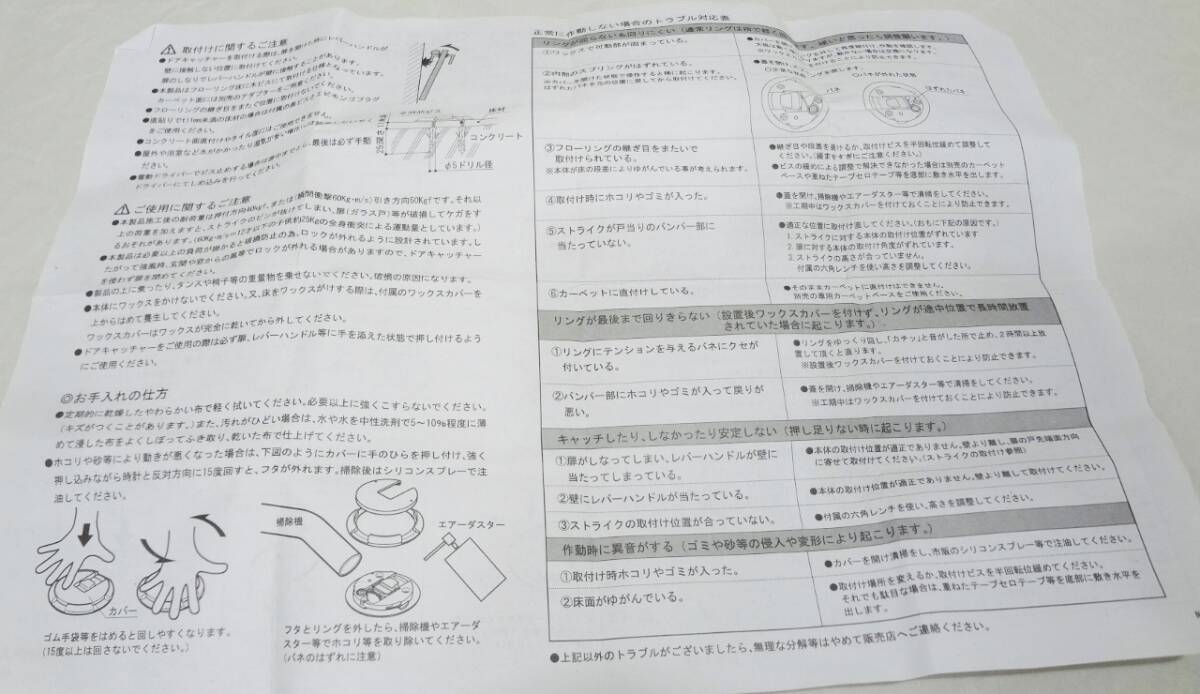 ⚠ 取付けに関するご注意
●ドアキャッチャーを取付ける際は、扉を開けた時にレバーハンドルが
壁に接触しない位置に取付けてください。
扉のしなりでレバーハンドルが壁に接触することがあります。
●本製品はフローリング床に木ビスにて取付ける仕様となっています。
カーペット面には別売のアダプターをご用意ください。
●フローリングの継ぎ目をまたぐ位置に取付けないでください。
をご使用ください。
ださい。
●電動ドライバーでビス止めする場合は
最後は必ず手動
ドライバーにてしめ込みを行ってください。
床材
コンクリート
φ5ドリル径
⚠ ご使用に関するご注意
●本製品施工後の耐荷重は押付方向40kgf、または(横間衝撃60Kg·m/s)引き方向50Kgfです。それ以
上の荷重を加えますと、ストライクのピンが抜けてしまい、扉(ガラス戸)等が破損してケガをす
るおそれがあります。(60Kg·m/s=12才以下の子供約25Kgの全身衝突による運動量としています。)
●本製品は必要以上の負荷が掛かると破損防止の為、ロックが外れるように設計されています。し
たがって強風時、玄関や窓からの風等でロックが外れる場合がありますので、ドアキャッチャー
を使わず扉を閉めてください。
●製品の上に乗ったり、タンスや椅子等の重量物を乗せないでください。破損の原因になります。
●本体にワックスをかけないでください。又、床をワックスがけする際は、付属のワックスカバーを
上からはめて養生してください。
ワックスカバーはワックスが完全に乾いてから外してください。
●ドアキャッチャーをご使用の際は必ず扉、レバーハンドル等に手を添えた状態で押し付けるよう
にご使用ください。
◎お手入れの仕方
●定期的に乾燥したやわらかい布で軽く拭いてください。必要以上に強くこすらないでください。
(キズがつくことがあります。)また、汚れがひどい場合は、水や水を中性洗剤で5～10%程度に薄
めて浸した布をよくしぼってふき取り、乾いた布で仕上げてください。
●ホコリや砂等により動きが悪くなった場合は、下図のようにカバーに手のひらを押し付け、強く
押し込みながら時計と反対方向に15度回すと、フタが外れます。掃除後はシリコンスプレーで注
油してください。
カバー
掃除機
エアーダスター
ゴム手袋等をはめると回しやすくなります。
(15度以上は回さないでください。)
フタとリングを外したら、掃除機やエアーダ
スター等でホコリ等を取り除いてください。
(バネのはずれに注意)
正常に作動しない場合のトラブル対応表
リングが回らない&回りにくい(通常リングは指で軽く回
①ワックスで可動部が固まっている。
②内部のスプリングがはずれている。
※カバーを開けた状態で操作すると稀に起こります。
はずれたバネを元の位置に戻してから取付けてください。
バネ
○バネが外れた状態
はずれたバネ
③フローリングの継ぎ目をまたいで
取付けられている。
※本体が床の段差によりゆがんでいる事が考えられます。
●継ぎ目や段差を避けるか、取付けビスを半回転位緩めて調整して
ください。(緩ますぎにご注意ください。)
●ビスの緩めによる調整で解決できなかった場合は別売のカーペット
ベースや重ねたテープセロテープ等を底部に敷き水平を出します。
④取付け時にホコリやゴミが入った。
●蓋を開け、掃除機やエアーダスター等で清掃をしてください。
※工期中はワックスカバーを付けておくことにより防止できます。
⑤ストライクが戸当りのバンパー部に
当たっていない。
●適正な位置に取付け直してください。(おもに下記の原因です。)
1. ストライクに対する本体の取付け位置がずれています
2. 扉に対する本体の取付け角度がずれています。
3. ストライクの高さが合っていません。
付属の六角レンチを使い高さを調整してください。
⑥カーペットに直付けしている。
●そのままカーペットに直付けはできません。
別売の専用カーペットベースをご使用ください。
リングが最後まで回りきらない(設置後ワックスカバーを付けず、リングが途中位置で長時間放置
されていた場合に起こります。)
①リングにテンションを与えるバネにクセが
付いている。
●リングをゆっくり回し、「カチッ」と音がした所で止め、2時間以上放
置して頂くと直ります。
※設置後ワックスカバーを付けておくことにより防止できます。
②バンパー部にホコリやゴミが入って戻りが
悪い。
●蓋を開け、掃除機やエアーダスター等で清掃をしてください。
※工期中はワックスカバーを付けておくことにより防止できます。
キャッチしたり、しなかったり安定しない(押し足りない時に起こります。)
①扉がしなってしまい、レバーハンドルが壁に
当たってしまっている。
●本体の取付け位置が適正でありません。壁より離し、扉の戸先端面方向
に寄せて取付けてください。(ストライクの取付け参照)
②壁にレバーハンドルが当たっている。
●本体の取付け位置が適正でありません。壁より離して取付けてください。
③ストライクの取付け位置が合っていない。
●付属の六角レンチを使い、高さを調整してください。
作動時に異音がする(ゴミや砂等の侵入や変形により起こります。)
①取付け時ホコリやゴミが入った。
●カバーを開け清掃をし、市販のシリコンスプレー等で注油してください。
②床面がゆがんでいる。
●取付け場所を変えるか、取付けビスを半回転位緩めてください。
それでも駄目な場合は、重ねたテープセロテープ等を底部に敷き水平を
出します。
●上記以外のトラブルがございましたら、無理な分解等はやめて販売店へご連絡ください。